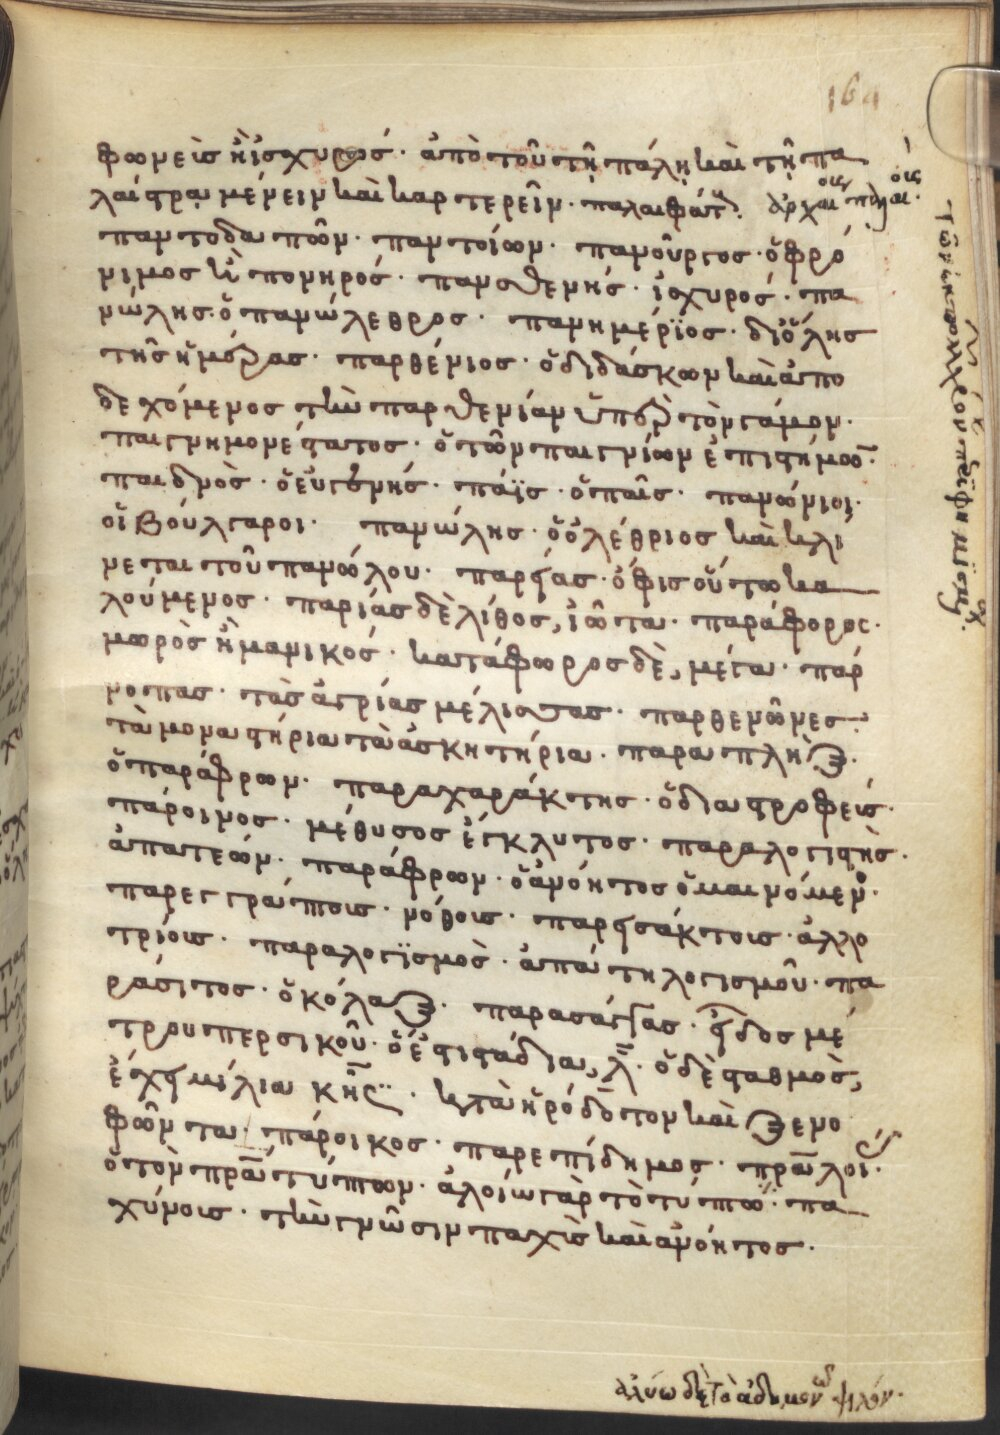 164
φωνεὶς ἢ ἰσχυρός· ἀπὸ τοῦ τῇ πάλῃ καὶ τῇ πα
λαίστρᾳ μένειν καὶ καρτερεῖν· παλαιφάτ· ἀρχαι
παντοδαπῶν· παντοίων· πανοῦργος· ὁ φρό
νιμος καὶ πονηρός· πανσθενής· ἰσχυρός· πα
νώλης· ὁ πανώλεθρος· πανημέρϊος· δι ὅλης
τῆς ἡμέρας· παρθένιος· ὁ διδάσκων καὶ ἀπο
δεχόμενος τὴν παρθενίαν ὑπὲρ τὸν γάμον·
παιγνημονέστατος· ὁ τῶν παιγνίων ἐπιστήμων·
παιδνὸς· ὁ εὐγενής· πάϊς· ὁ παῖς· πανώνιοι·
οἱ Βούλγαροι· πανώλης· ὁ ὀλέθριος καὶ κλί
νεται τοῦ πανώλου· παρείας· ὄφις οὕτω κα
λούμενος· παριάς δὲ λίθος, ἰῶτα· παράφορος·
μωρὸς ἢ μανικός· κατάφωρος δὲ, μέγα· πάρ
νοπας· τὰς ἀγρίας μέλισσας· παρθενῶνες·
τὰ μοναστήρια τὰ ἀσκητήρια· παραπλὴξ·
ὁ παράφρων· παραχαράκτης· ὁ διαστροφεύς·
πάροινος· μέθυσος ἔγκλυτος· παραλογιστὴς·
ἀπατεών· παράφρων· ὁ ἀνόητος ὁ μαινόμενος·
παρεγγράπτοις· νόθοις· παρεισάκτοις· ἀλλο
τρίοις· παραλογϊσμὸς· ἀπάτη λογισμοῦ· πα
ράσιτος· ὁ κόλαξ· παρασάγγας· εἶδος μέ
τρου περσικοῦ· ὁ στάδια, λ· ὁ δὲ σταθμὸς,
ἔχει μίλια κη· κατὰ ἡρόδοτον καὶ ξενο
φῶντα· πάροικος· παρεπίδημος·
ὁ τὸν τύπτων· ἀλοιῶ γὰρ τὸ τύπτω· πα
χύνοις· τὴν γνῶσιν παχὺς καὶ ἀνόητος·
ἀλύω δὲ τὸ ἀδημονῶ ψιλόν·